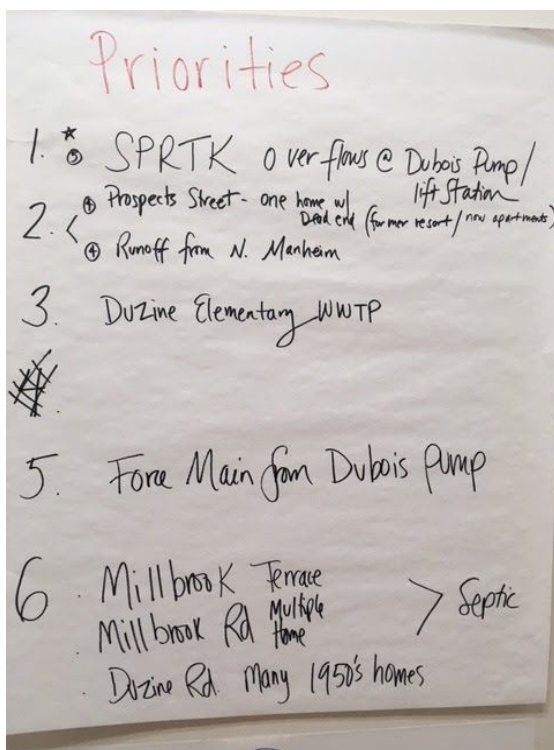 Priorities
1. * ⑤ SPRTK Overflows @ Dubois Pump/
lift Station
2. < ④ Prospects Street - one home w/
Dead end (former resort/now apartments)
④ Runoff from N. Manheim
3. Duzine Elementary WWTP
5. Force Main from Dubois Pump
6 . Millbrook Terrace
. Millbrook Rd Multiple
Home
> Septic
. Duzine Rd. Many 1950's homes